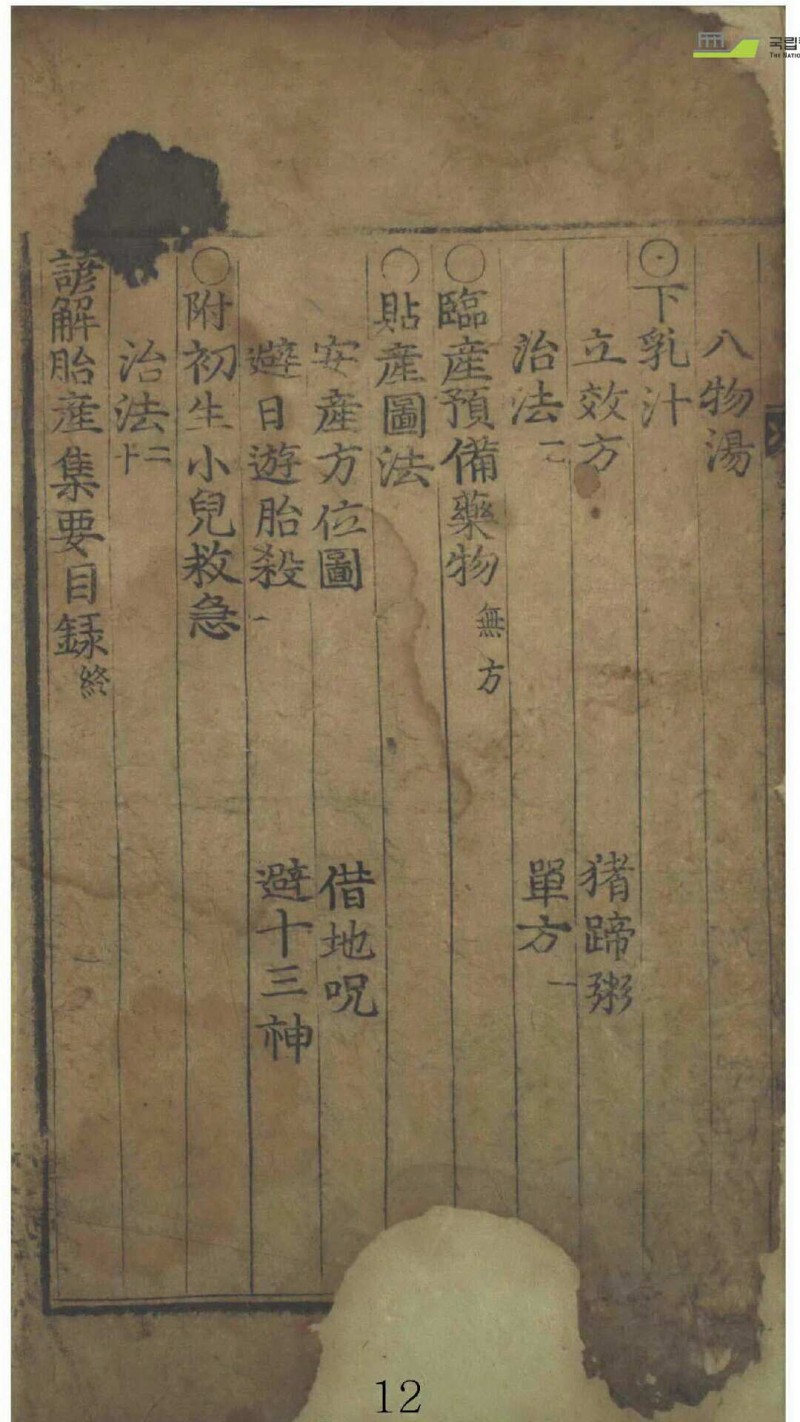 八物湯
下乳汁
立效方 猪蹄粥
治法 單方一
臨産預備藥物 無方
貼産圖法
安産方位圖 借地呪
避日遊胎殺 避十三神
附初生小兒救急
治法二十
諺解胎産集要目録 終
국립
THE NATIO
12